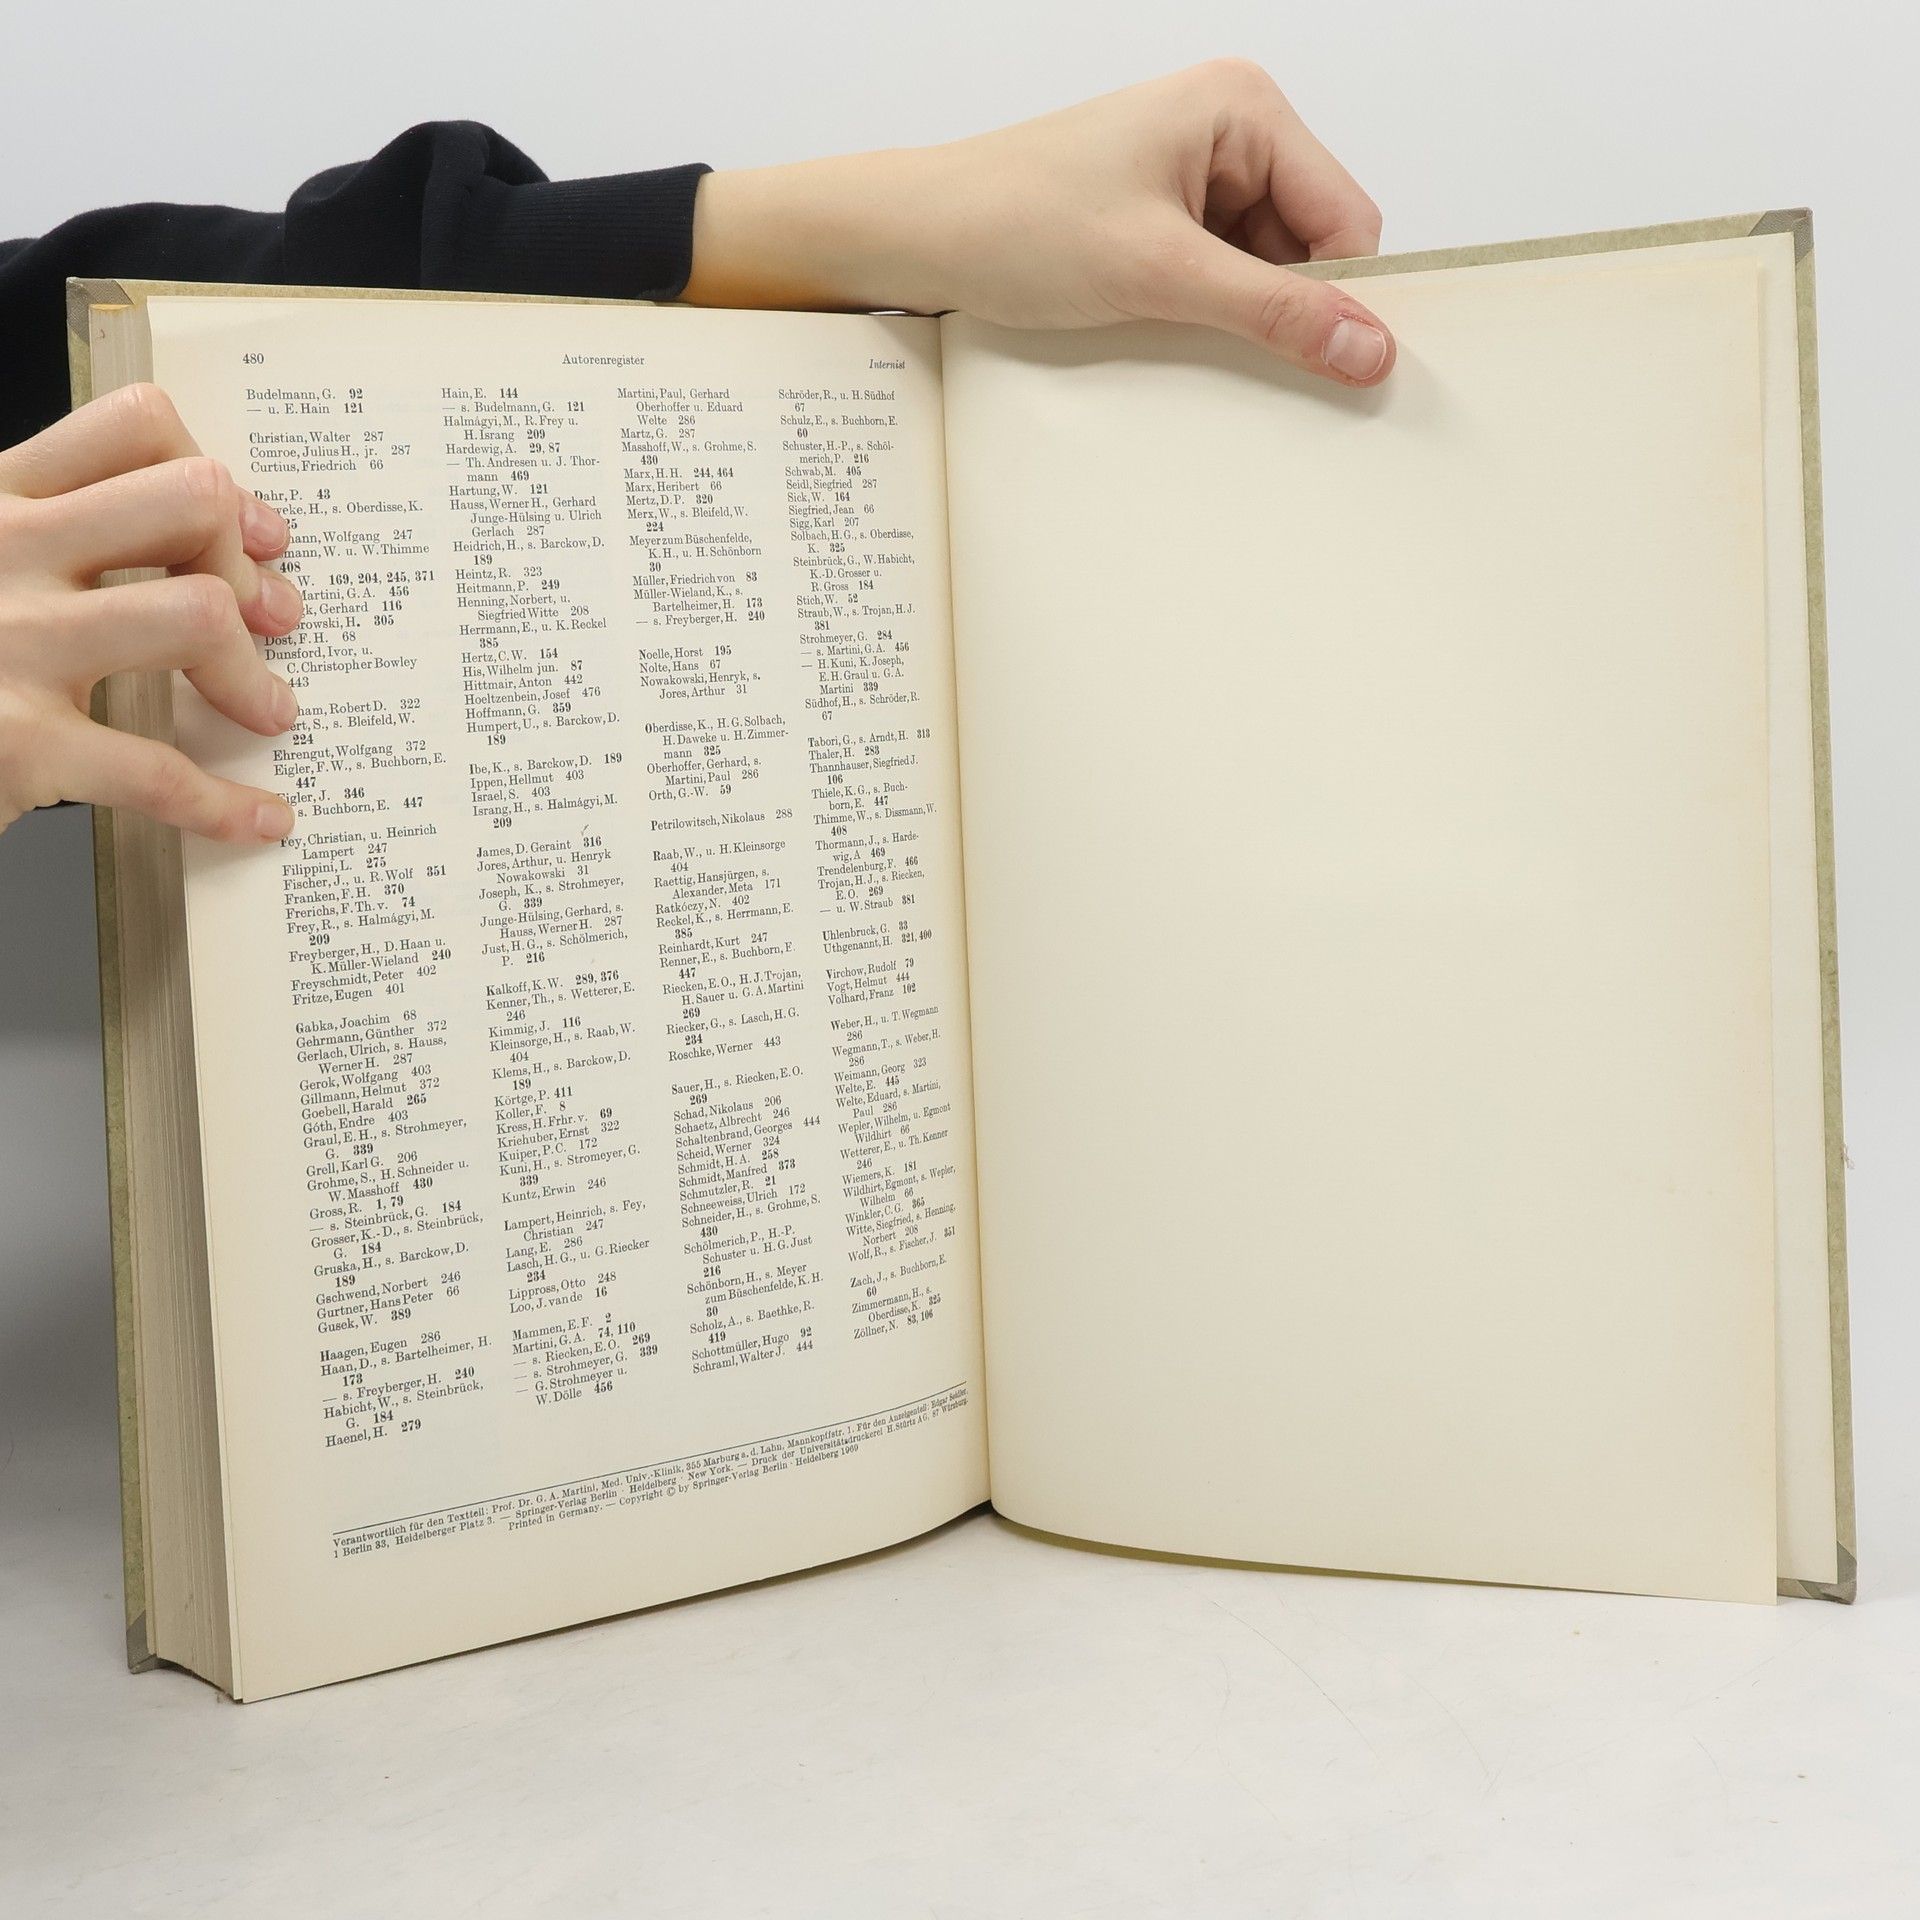 480 Autorenregister Internist
Budelmann, G. 92
— u. E. Hain 121
Christian, Walter 287
Comroe, Julius H., jr. 287
Curtius, Friedrich 66
Dahr, P. 43
H., s. Oberdisse, K.
Wolfgang 247
W. u. W. Thimme
408
W. 169, 204, 245, 371
Martini, G. A. 456
Gerhard 116
H. 305
Dost, F. H. 68
Dunsford, Ivor, u.
C. Christopher Bowley
443
Robert D. 322
S., s. Bleifeld, W.
224
Ehrengut, Wolfgang 372
Eigler, F. W., s. Buchborn, E.
447
Eigler, J. 346
s. Buchborn, E. 447
Fey, Christian, u. Heinrich
Lampert 247
Filippini, L. 275
Fischer, J., u. R. Wolf 351
Franken, F. H. 370
Frerichs, F. Th. v. 74
Frey, R., s. Halmágyi, M.
209
Freyberger, H., D. Haan u.
K. Müller-Wieland 240
Freyschmidt, Peter 402
Fritze, Eugen 401
Gabka, Joachim 68
Gehrmann, Günther 372
Gerlach, Ulrich, s. Hauss,
Werner H. 287
Gerok, Wolfgang 403
Gillmann, Helmut 372
Goebell, Harald 265
Góth, Endre 403
Graul, E. H., s. Strohmeyer,
G. 339
Grell, Karl G. 206
Grohme, S., H. Schneider u.
W. Masshoff 430
Gross, R. 1, 79
— s. Steinbrück, G. 184
Grosser, K.-D., s. Steinbrück,
G. 184
Gruska, H., s. Barckow, D.
189
Gschwend, Norbert 246
Gurtner, Hans Peter 66
Gusek, W. 389
Haagen, Eugen 286
Haan, D., s. Bartelheimer, H.
173
— s. Freyberger, H. 240
Habicht, W., s. Steinbrück,
G. 184
Haenel, H. 279
Hain, E. 144
— s. Budelmann, G. 121
Halmágyi, M., R. Frey u.
H. Israng 209
Hardewig, A. 29, 87
— Th. Andresen u. J. Thor-
mann 469
Hartung, W. 121
Hauss, Werner H., Gerhard
Junge-Hülsing u. Ulrich
Gerlach 287
Heidrich, H., s. Barckow, D.
189
Heintz, R. 323
Heitmann, P. 249
Henning, Norbert, u.
Siegfried Witte 208
Herrmann, E., u. K. Reckel
385
Hertz, C. W. 154
His, Wilhelm jun. 87
Hittmair, Anton 442
Hoeltzenbein, Josef 476
Hoffmann, G. 359
Humpert, U., s. Barckow, D.
189
Ibe, K., s. Barckow, D. 189
Ippen, Hellmut 403
Israel, S. 403
Israng, H., s. Halmágyi, M.
209
James, D. Geraint 316
Jores, Arthur, u. Henryk
Nowakowski 31
Joseph, K., s. Strohmeyer,
G. 339
Junge-Hülsing, Gerhard, s.
Hauss, Werner H. 287
Just, H. G., s. Schölmerich,
P. 216
Kalkoff, K. W. 289, 376
Kenner, Th., s. Wetterer, E.
246
Kimmig, J. 116
Kleinsorge, H., s. Raab, W.
404
Klems, H., s. Barckow, D.
189
Körtge, P. 411
Koller, F. 8
Kress, H. Frhr. v. 69
Kriehuber, Ernst 322
Kuiper, P. C. 172
Kuni, H., s. Stromeyer, G.
339
Kuntz, Erwin 246
Lampert, Heinrich, s. Fey,
Christian 247
Lang, E. 286
Lasch, H. G., u. G. Riecker
234
Lippross, Otto 248
Loo, J. van de 16
Mammen, E. F. 2
Martini, G. A. 74, 110
— s. Riecken, E. O. 269
— s. Strohmeyer, G. 339
— G. Strohmeyer u.
W. Dölle 456
Martini, Paul, Gerhard
Oberhoffer u. Eduard
Welte 286
Martz, G. 287
Masshoff, W., s. Grohme, S.
430
Marx, H. H. 244, 464
Marx, Heribert 66
Mertz, D. P. 320
Merx, W., s. Bleifeld, W.
224
Meyer zum Büschenfelde,
K. H., u. H. Schönborn
30
Müller, Friedrich von 83
Müller-Wieland, K., s.
Bartelheimer, H. 173
— s. Freyberger, H. 240
Noelle, Horst 195
Nolte, Hans 67
Nowakowski, Henryk, s.
Jores, Arthur 31
Oberdisse, K., H. G. Solbach,
H. Daweke u. H. Zimmer-
mann 325
Oberhoffer, Gerhard, s.
Martini, Paul 286
Orth, G.-W. 59
Petrilowitsch, Nikolaus 288
Raab, W., u. H. Kleinsorge
404
Raettig, Hansjürgen, s.
Alexander, Meta 171
Ratkóczy, N. 402
Reckel, K., s. Herrmann, E.
385
Reinhardt, Kurt 247
Renner, E., s. Buchborn, E.
447
Riecken, E. O., H. J. Trojan,
H. Sauer u. G. A. Martini
269
Riecker, G., s. Lasch, H. G.
234
Roschke, Werner 443
Sauer, H., s. Riecken, E. O.
269
Schad, Nikolaus 206
Schaetz, Albrecht 246
Schaltenbrand, Georges 444
Scheid, Werner 324
Schmidt, H. A. 258
Schmidt, Manfred 373
Schmutzler, R. 21
Schneeweiss, Ulrich 172
Schneider, H., s. Grohme, S.
430
Schölmerich, P., H.-P.
Schuster u. H. G. Just
216
Schönborn, H., s. Meyer
zum Büschenfelde, K. H.
30
Scholz, A., s. Baethke, R.
419
Schottmüller, Hugo 92
Schraml, Walter J. 444
Schröder, R., u. H. Südhof
67
Schulz, E., s. Buchborn, E.
60
Schuster, H.-P., s. Schöl-
merich, P. 216
Schwab, M. 405
Seidl, Siegfried 287
Sick, W. 164
Siegfried, Jean 66
Sigg, Karl 207
Solbach, H. G., s. Oberdisse,
K. 325
Steinbrück, G., W. Habicht,
K.-D. Grosser u.
R. Gross 184
Stich, W. 52
Straub, W., s. Trojan, H. J.
381
Strohmeyer, G. 284
— s. Martini, G. A. 456
— H. Kuni, K. Joseph,
E. H. Graul u. G. A.
Martini 339
Südhof, H., s. Schröder, R.
67
Tabori, G., s. Arndt, H. 313
Thaler, H. 283
Thannhauser, Siegfried J.
106
Thiele, K. G., s. Buch-
born, E. 447
Thimme, W., s. Dissmann, W.
408
Thormann, J., s. Harde-
wig, A 469
Trendelenburg, F. 466
Trojan, H. J., s. Riecken,
E. O. 269
— u. W. Straub 381
Uhlenbruck, G. 33
Uthgenannt, H. 321, 400
Virchow, Rudolf 79
Vogt, Helmut 444
Volhard, Franz 102
Weber, H., u. T. Wegmann
286
Wegmann, T., s. Weber, H.
286
Weimann, Georg 323
Welte, E. 445
Welte, Eduard, s. Martini,
Paul 286
Wepler, Wilhelm, u. Egmont
Wildhirt 66
Wetterer, E., u. Th. Kenner
246
Wiemers, K. 181
Wildhirt, Egmont, s. Wepler,
Wilhelm 66
Winkler, C. G. 365
Witte, Siegfried, s. Henning,
Norbert 208
Wolf, R., s. Fischer, J. 351
Zach, J., s. Buchborn, E.
60
Zimmermann, H., s.
Oberdisse, K. 325
Zöllner, N. 83, 106
Verantwortlich für den Textteil: Prof. Dr. G. A. Martini, Med. Univ.-Klinik, 355 Marburg a. d. Lahn, Mannkopffstr. 1. Für den Anzeigenteil: Edgar Seidler,
1 Berlin 33, Heidelberger Platz 3. — Springer-Verlag Berlin · Heidelberg · New York. — Druck der Universitätsdruckerei H. Stürtz AG, 87 Würzburg.
Printed in Germany. — Copyright © by Springer-Verlag Berlin · Heidelberg 1969